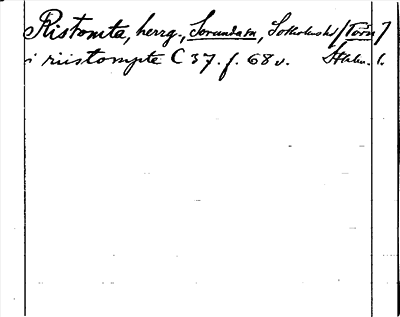 Ristomta, herrg., Sorunda sn, Sotholms hd [Törn]
i riistompte C 37. f. 68 v. Sthlm. l.